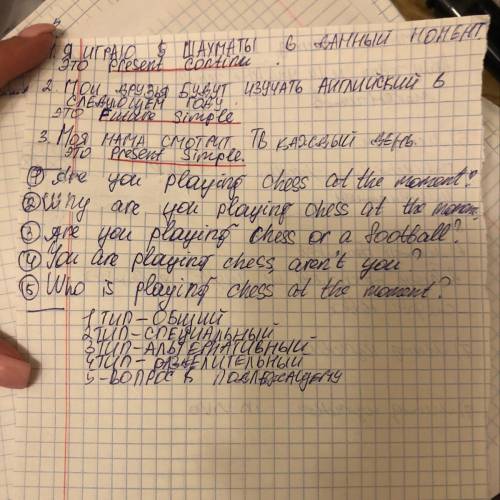 1. Я ИГРАЮ В ШАХМАТЫ В ДАННЫЙ МОМЕНТ
ЭТО Present contin.
2. МОИ ДРУЗЬЯ БУДУТ ИЗУЧАТЬ АНГЛИЙСКИЙ В
СЛЕДУЮЩЕМ ГОДУ.
ЭТО Future Simple
3. МОЯ МАМА СМОТРИТ ТВ КАЖДЫЙ ДЕНЬ.
ЭТО Present Simple.
1 Are you playing chess at the moment?
2 Why are you playing chess at the momen
3 Are you playing chess or a football?
4 You are playing chess, aren't you?
5 Who is playing chess at the moment?
1 ТИП-ОБЩИЙ
2 ТИП-СПЕЦИАЛЬНЫЙ
3 ТИП-АЛЬТЕРНАТИВНЫЙ
4 ТИП-
5-ВОПРОС В